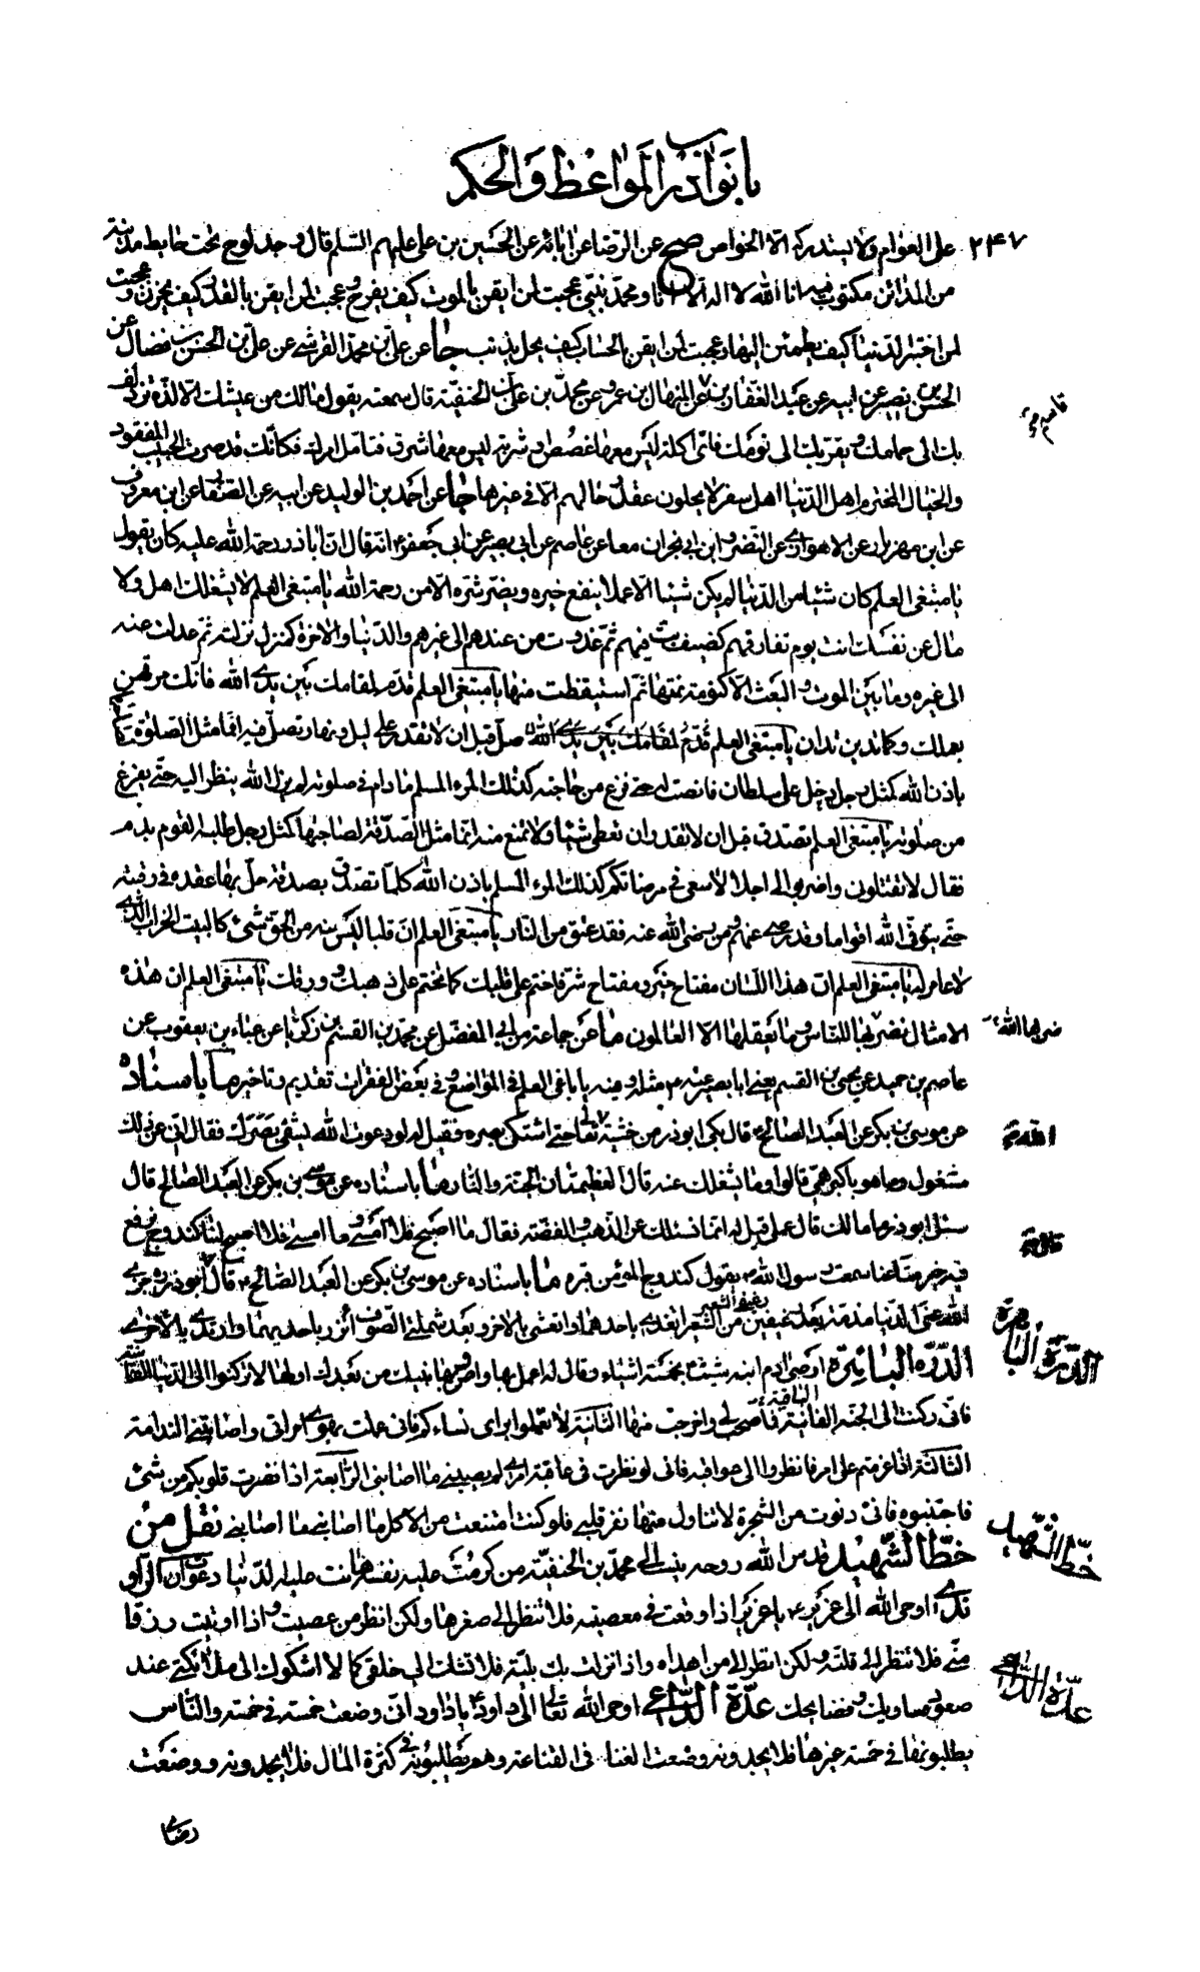 باب نوادر المواعظ والحكم
٢٤٧
على العوام ولا يستدركه الا الخواص صح عن الرضا عن ابائه عن الحسين بن على عليهم السلم قال وجد لوح تحت حايط مدينة
من المدائن مكتوب فيه انا الله لا اله الا انا ومحمد نبيى عجبت لمن ايقن بالموت كيف يفرح وعجبت لمن ايقن بالقدر كيف يحزن وعجبت
لمن اختبر الدنيا كيف يطمئن اليها وعجبت لمن ايقن بالحساب كيف يذنب جا عن على بن محمد القرشى عن على بن الحسن بن فضال عن
الحسن بن نصير عن ابيه عن عبد الغفار بن عن المنهال بن عمرو عن محمد بن على بن الحنفية قال سمعته يقول مالك من عيشك الا لذة تزدلف
بك الى حمامك ويقربك الى نومك فاى اكلة ليس معها غصص او شربة ليس معها شرق فتامل امرك فكانك قد صرت الحبيب المفقود
والخيال المخترم اهل الدنيا اهل سفر لا يحلون عقد رحالهم الا فى غيرها جا عن احمد بن الوليد عن ابيه عن الصفار عن ابن معروف
عن ابن مهزيار عن الاهوازى عن النضر وابن ابى نجران معا عن عاصم عن ابى بصير عن ابى جعفر انه قال ان اباذر رحمة الله عليه كان يقول
يا مبتغى العلم كان شيئا من الدنيا لم يكن شيئا الا عملا ينفع خيره ويضر شره الا من رحمه الله يا مبتغى العلم لا يشغلك اهل ولا
مال عن نفسك انت يوم تفارقهم كضيف بت فيهم ثم غدوت من عندهم الى غيرهم والدنيا والاخرة كمنزل نزلته ثم عدلت عنه
الى غيره وما بين الموت والبعث الا كنومة نمتها ثم استيقظت منها يا مبتغى العلم قدم لمقامك بين يدى الله فانك مرتهن
بعملك وكما تدين تدان يا مبتغى العلم صل قبل ان لا تقدر على ليل ونهار تصلى فيه انما مثل الصلوة
باذن الله كمثل رجل دخل على سلطان فانصت له حتى فرغ من حاجته كذلك المرء المسلم مادام فى صلوته لم يزل الله ينظر اليه حتى يفرغ
من صلوته يا مبتغى العلم تصدق قبل ان لا تقدر ان تعطى شيئا ولا تمنع منه انما مثل الصدقة لصاحبها كمثل رجل طلبه القوم بدم
فقال لا تقتلون واضربوا لى اجلا لاسعى فى مرضاتكم كذلك المرء المسلم باذن الله كلما تصدق بصدقة حل بها عقدة فى رقبته
حتى يتوفى الله اقواما وقد رضى عنهم ومن رضى الله عنه فقد عتق من النار يا مبتغى العلم ان قلبا ليس فيه من الحق شئ كالبيت الخراب الذى
لا عامر له يا مبتغى العلم ان هذا اللسان مفتاح خير ومفتاح شر فاختم على قلبك كما تختم على ذهبك وورقك يا مبتغى العلم ان هذه
الامثال نضربها للناس وما يعقلها الا العالمون ما عن جماعة عن ابى المفضل عن محمد بن القسم بن زكريا عن عباد بن يعقوب عن
ضربها الله
عاصم بن حميد عن يحيى بن القسم يعنى ابا بصير عنه مثله وفيه يا باغى العلم فى المواضع وفى بعض الفقرات تقديم وتاخير ما باسناده
عن موسى بن بكر عن العبد الصالح قال بكى ابوذر من خشية الله تعالى حتى اشتكى بصره فقيل له لو دعوت الله ليشفى بصرك فقال انى عن ذلك
مشغول وما هو باكبر همى قالوا وما يشغلك عنه قال العظيمتان الجنة والنار ما باسناده عن موسى بن بكر عن العبد الصالح قال
سئل ابوذر ما مالك قال عملى قيل له انما نسئلك عن الذهب والفضة فقال ما اصبح فلا امسى وما امسى فلا اصبح لنا كندوج نرفع
فيه خير متاعنا سمعت رسول الله يقول كندوج المؤمن قبره ما باسناده عن موسى بن بكر عن العبد الصالح قال قال ابوذر ره جزى
الله عنى الدنيا مذمة بعد رغيفين من الشعير اتغدى باحدهما واتعشى بالاخر وبعد شملتى الصوف اتزر باحديهما وارتدى بالاخرى
الدرة الباهرة
الدرة الباهرة اوصى ادم ابنه شيث بخمسة اشياء وقال له اعمل بها واوص بها بنيك من بعدك اولها لا تركنوا الى الدنيا الفانية
فانى ركنت الى الجنة الباقية فما صحب لى واخرجت منها الثانية لا تعملوا براى نساءكم فانى عملت بهوى امراتى واصابتنى الندامة
الثالثة اذا عزمتم على امر فانظروا الى عواقبه فانى لو نظرت فى عاقبة امرى لم يصيبنى ما اصابنى الرابعة اذا نفرت قلوبكم من شئ
فاجتنبوه فانى دنوت من الشجرة لاتناول منها نفر قلبى فلو كنت امتنعت من الاكل ما اصابنى ما اصابنى نقل من
خط الشهيد
خط الشهيد قدس الله روحه ينسب الى محمد بن الحنفية من كرمت عليه نفسه هانت عليه الدنيا دعوات الراو
ندى اوحى الله الى عزير يا عزير اذا وقعت فى معصية فلا تنظر الى صغرها ولكن انظر من عصيت واذا اوتيت رزقا
منى فلا تنظر الى قلته ولكن انظر الى من اهداه واذا نزلت بك بلية فلا تشك الى خلقى كما لا اشكوك الى ملائكتى عند
صعود مساويك وفضايحك عدة الداعى اوحى الله تعالى الى داود يا داود انى وضعت خمسة فى خمسة والناس
عدة الداعى
يطلبونها فى خمسة غيرها فلا يجدونه وضعت الغنا فى القناعة وهم يطلبونه فى كثرة المال فلا يجدونه ووضعت
رضاى